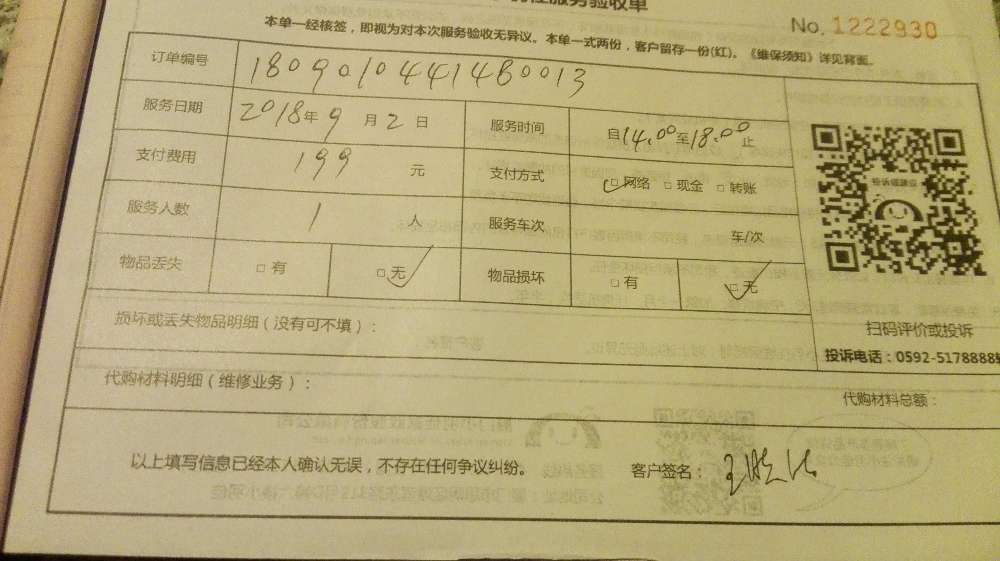 性服务验收单
No. 1222930
本单一经核签，即视为对本次服务验收无异议。本单一式两份，客户留存一份(红)。《维保须知》详见背面。
订单编号 1809010441480013
服务日期 2018年9月2日 服务时间 自14.00至18.00止
支付费用 199 元 支付方式 □网络 □现金 □转账
服务人数 1 人 服务车次 车/次
物品丢失 □有 □无 物品损坏 □有 □无
投诉或建议
扫码评价或投诉
损坏或丢失物品明细（没有可不填）：
投诉电话：0592-5178888
代购材料明细（维修业务）：
代购材料总额：
以上填写信息已经本人确认无误，不存在任何争议纠纷。 客户签名：